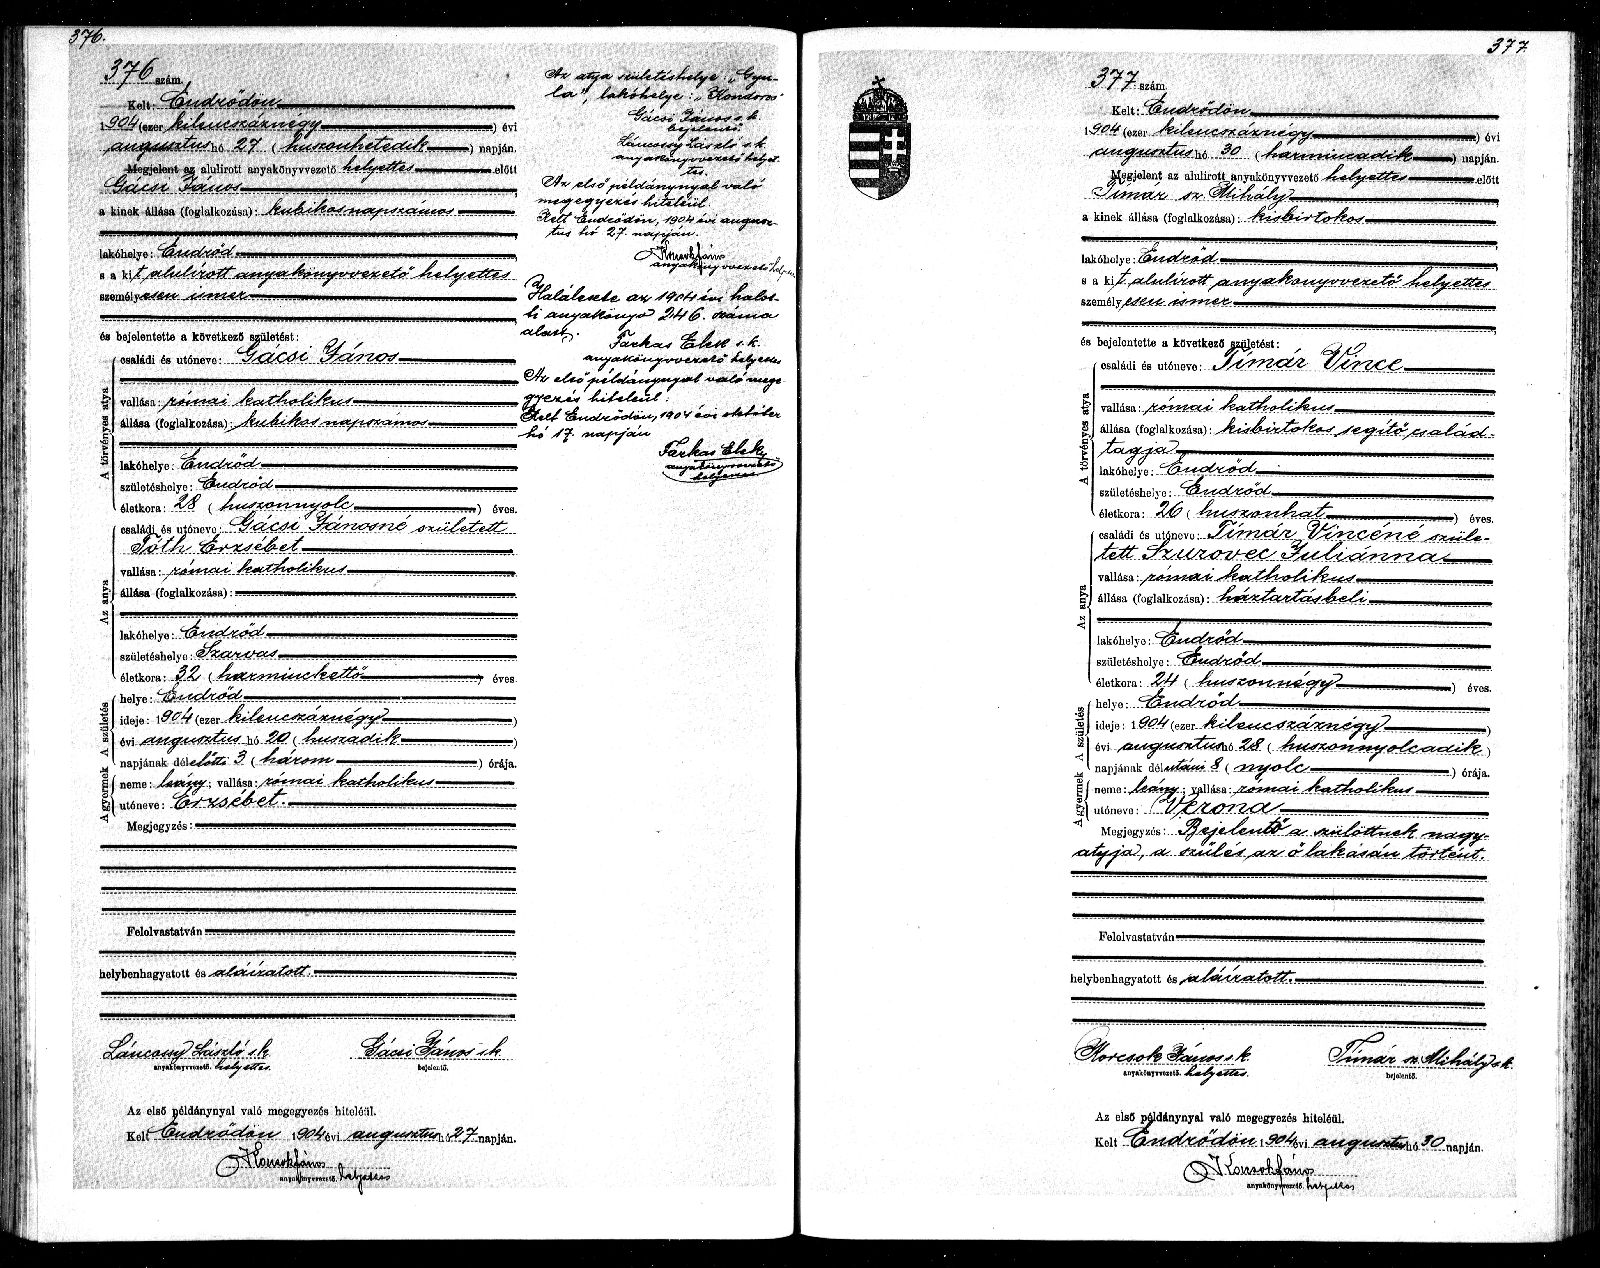 376.
376 szám.
Kelt: Endrődön
1904 (ezer kilencszáznégy) évi
augusztus hó 27 (huszonhetedik) napján.
Megjelent az alulirott anyakönyvvezető helyettes előtt
Gácsi János
a kinek állása (foglalkozása): kubikos napszámos
lakóhelye: Endrőd
s a kit alulírott anyakönyvvezető helyettes
személyesen ismer
és bejelentette a következő születést:
A törvényes atya
családi és utóneve: Gácsi János
vallása: római katholikus
állása (foglalkozása): kubikos napszámos
lakóhelye: Endrőd
születéshelye: Endrőd
életkora: 28 (huszonnyolc) éves.
Az anya
családi és utóneve: Gácsi Jánosné született
Tóth Erzsébet
vallása: római katholikus
állása (foglalkozása):
lakóhelye: Endrőd
születéshelye: Szarvas
életkora: 32 (harminckettő) éves.
A születés
helye: Endrőd
ideje: 1904 (ezer kilencszáznégy)
évi augusztus hó 20 (huszadik)
napjának délelőtti 3 (három) órája.
A gyermek
neme: leány; vallása: római katholikus
utóneve: Erzsébet.
Megjegyzés:
Felolvastatván
helybenhagyatott és aláíratott.
Láncossy László s.k. Gácsi János s.k.
anyakönyvvezető. helyettes. bejelentő.
Az első példánynyal való megegyezés hiteléül.
Kelt Endrődön 1904 évi augusztus hó 27 napján.
Korcsok János
anyakönyvvezető. helyettes
Az atya születéshelye: „Gyu-
la", lakóhelye: „Kondoros"
Gácsi János s.k.
bejelentő.
Láncossy László s.k.
anyakönyvvezető helyet-
tes.
Az első példánynyal való
megegyezés hiteléül.
Kelt Endrődön, 1904 évi augusz-
tus hó 27. napján.
Korcsok János
anyakönyvvezető helyettes
Halálesete az 1904 évi halot-
ti anyakönyv 246. száma
alatt.
Farkas Elek s.k.
anyakönyvvezető helyettes
Az első példánynyal való mege-
gyezés hiteléül.
Kelt Endrődön, 1904 évi október
hó 17. napján
Farkas Elek
anyakönyvvezető
helyettes
377.
377 szám.
Kelt: Endrődön
1904 (ezer kilencszáznégy) évi
augusztus hó 30 (harmincadik) napján.
Megjelent az alulirott anyakönyvvezető helyettes előtt
Tímár sz. Mihály
a kinek állása (foglalkozása): kisbirtokos
lakóhelye: Endrőd
s a kit alulírott anyakönyvvezető helyettes
személyesen ismer
és bejelentette a következő születést:
A törvényes atya
családi és utóneve: Tímár Vince
vallása: római katholikus
állása (foglalkozása): kisbirtokos segítő család-
tagja
lakóhelye: Endrőd
születéshelye: Endrőd
életkora: 26 (huszonhat) éves.
Az anya
családi és utóneve: Tímár Vincéné szüle-
tett Szurovec Juliánna
vallása: római katholikus
állása (foglalkozása): háztartásbeli
lakóhelye: Endrőd
születéshelye: Endrőd
életkora: 24 (huszonnégy) éves.
A születés
helye: Endrőd
ideje: 1904 (ezer kilencszáznégy)
évi augusztus hó 28 (huszonnyolcadik)
napjának délutáni 8 (nyolc) órája.
A gyermek
neme: leány; vallása: római katholikus
utóneve: Verona
Megjegyzés: Bejelentő a szülöttnek nagy-
atyja, a szülés az ő lakásán történt.
Felolvastatván
helybenhagyatott és aláíratott.
Korcsok János s.k. Tímár sz. Mihály s.k.
anyakönyvvezető. helyettes. bejelentő.
Az első példánynyal való megegyezés hiteléül.
Kelt Endrődön 1904 évi augusztus hó 30 napján.
Korcsok János
anyakönyvvezető. helyettes